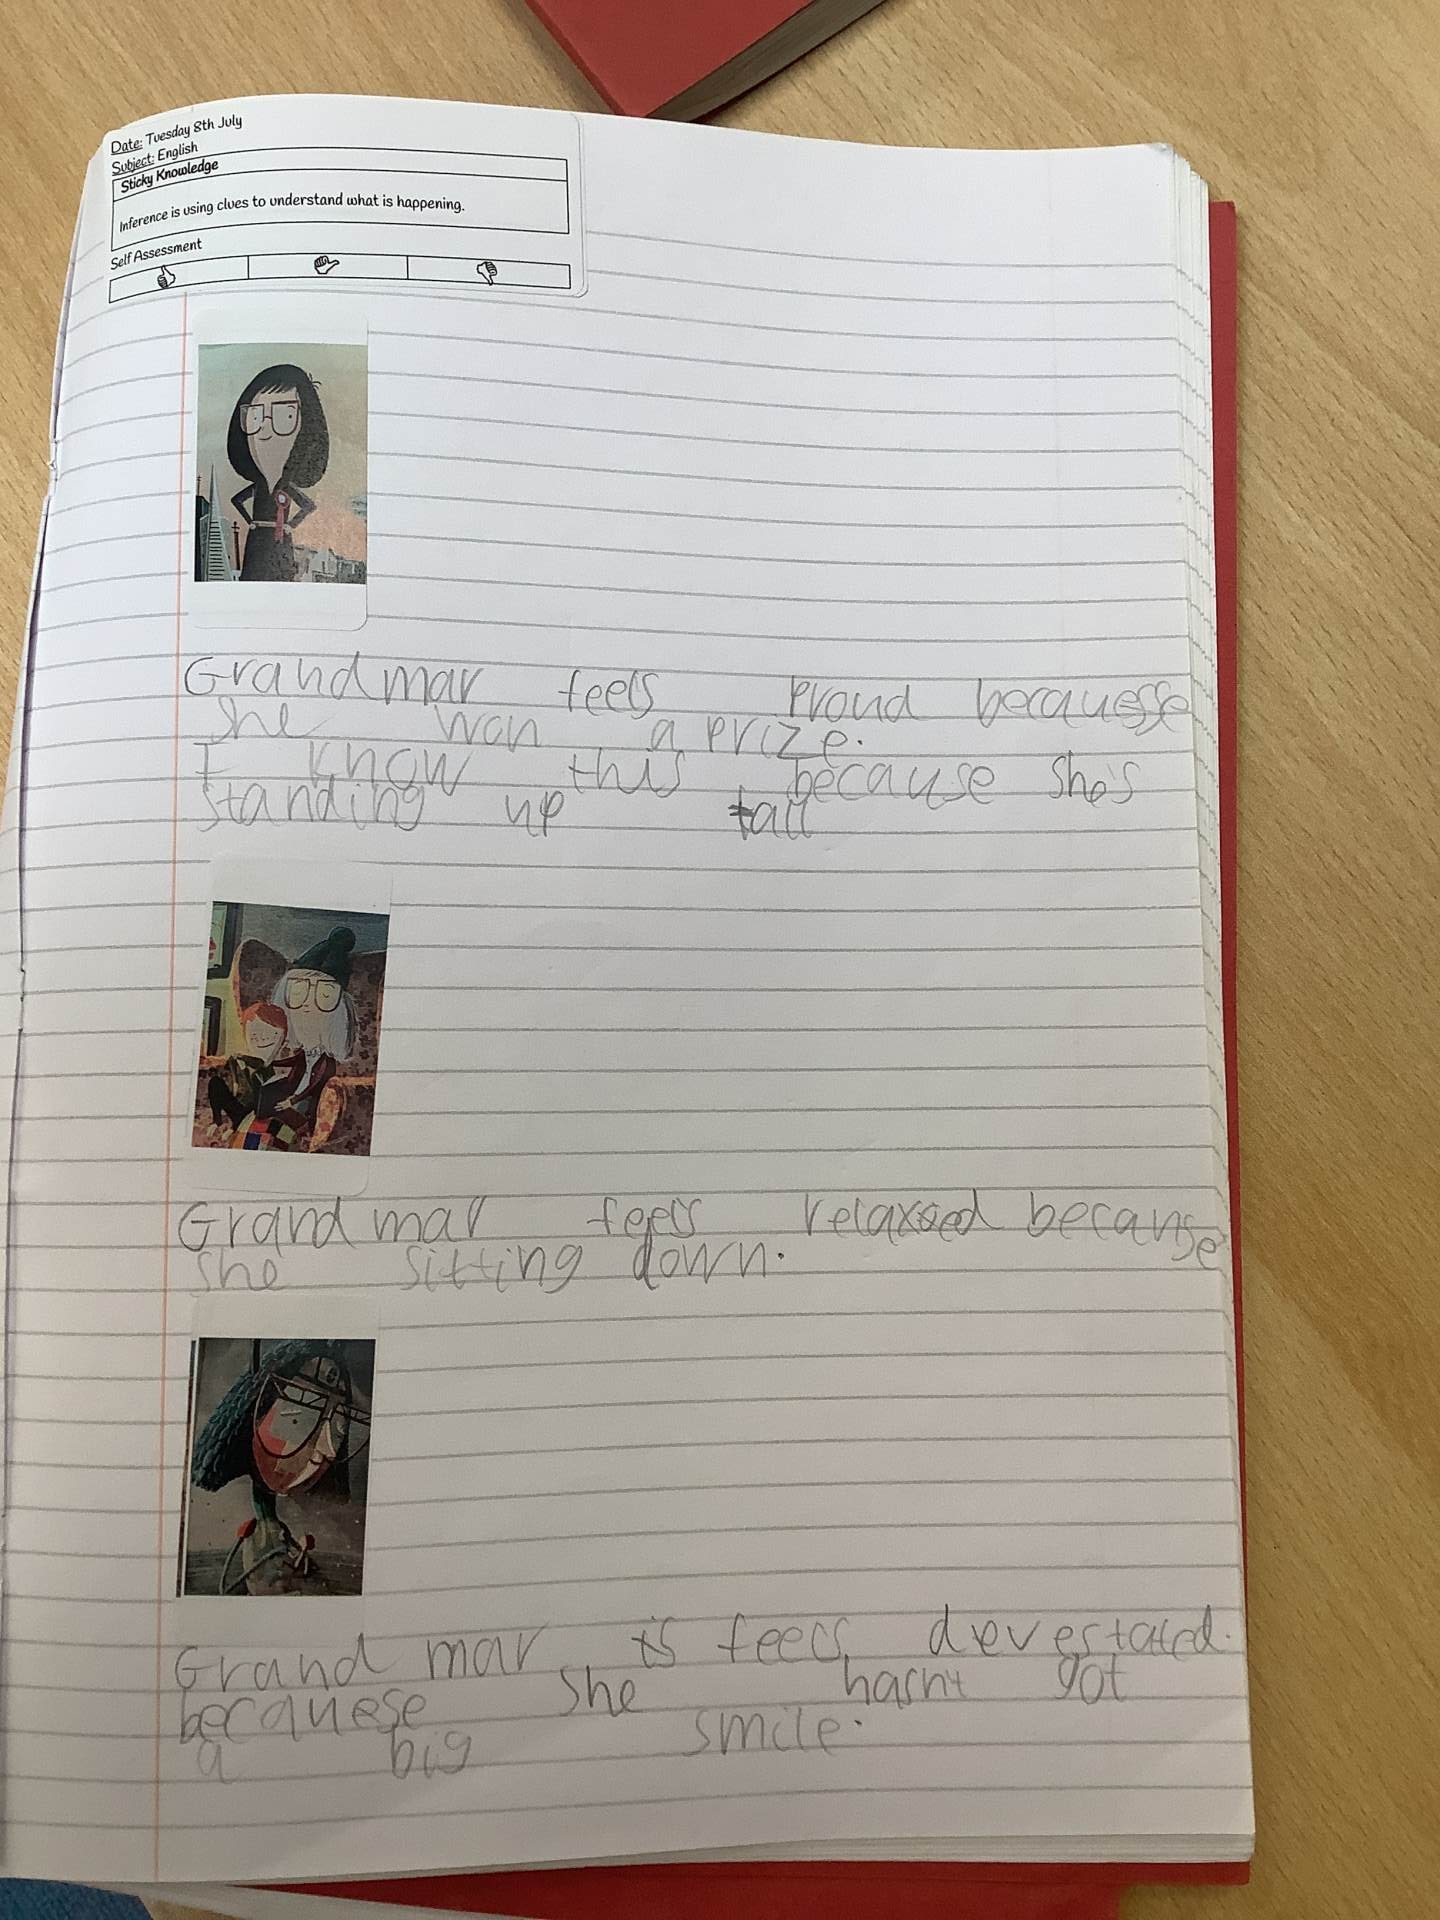 Date: Tuesday 8th July
Subject: English
Sticky Knowledge
Inference is using clues to understand what is happening.
Self Assessment
Grandmar feels proud becauesse
she won a prize.
I know this because she's
standing up tall
Grandmar feels relaxed because
she sitting down.
Grandmar is feels devestated.
becauese she hasn't got
a big smile.